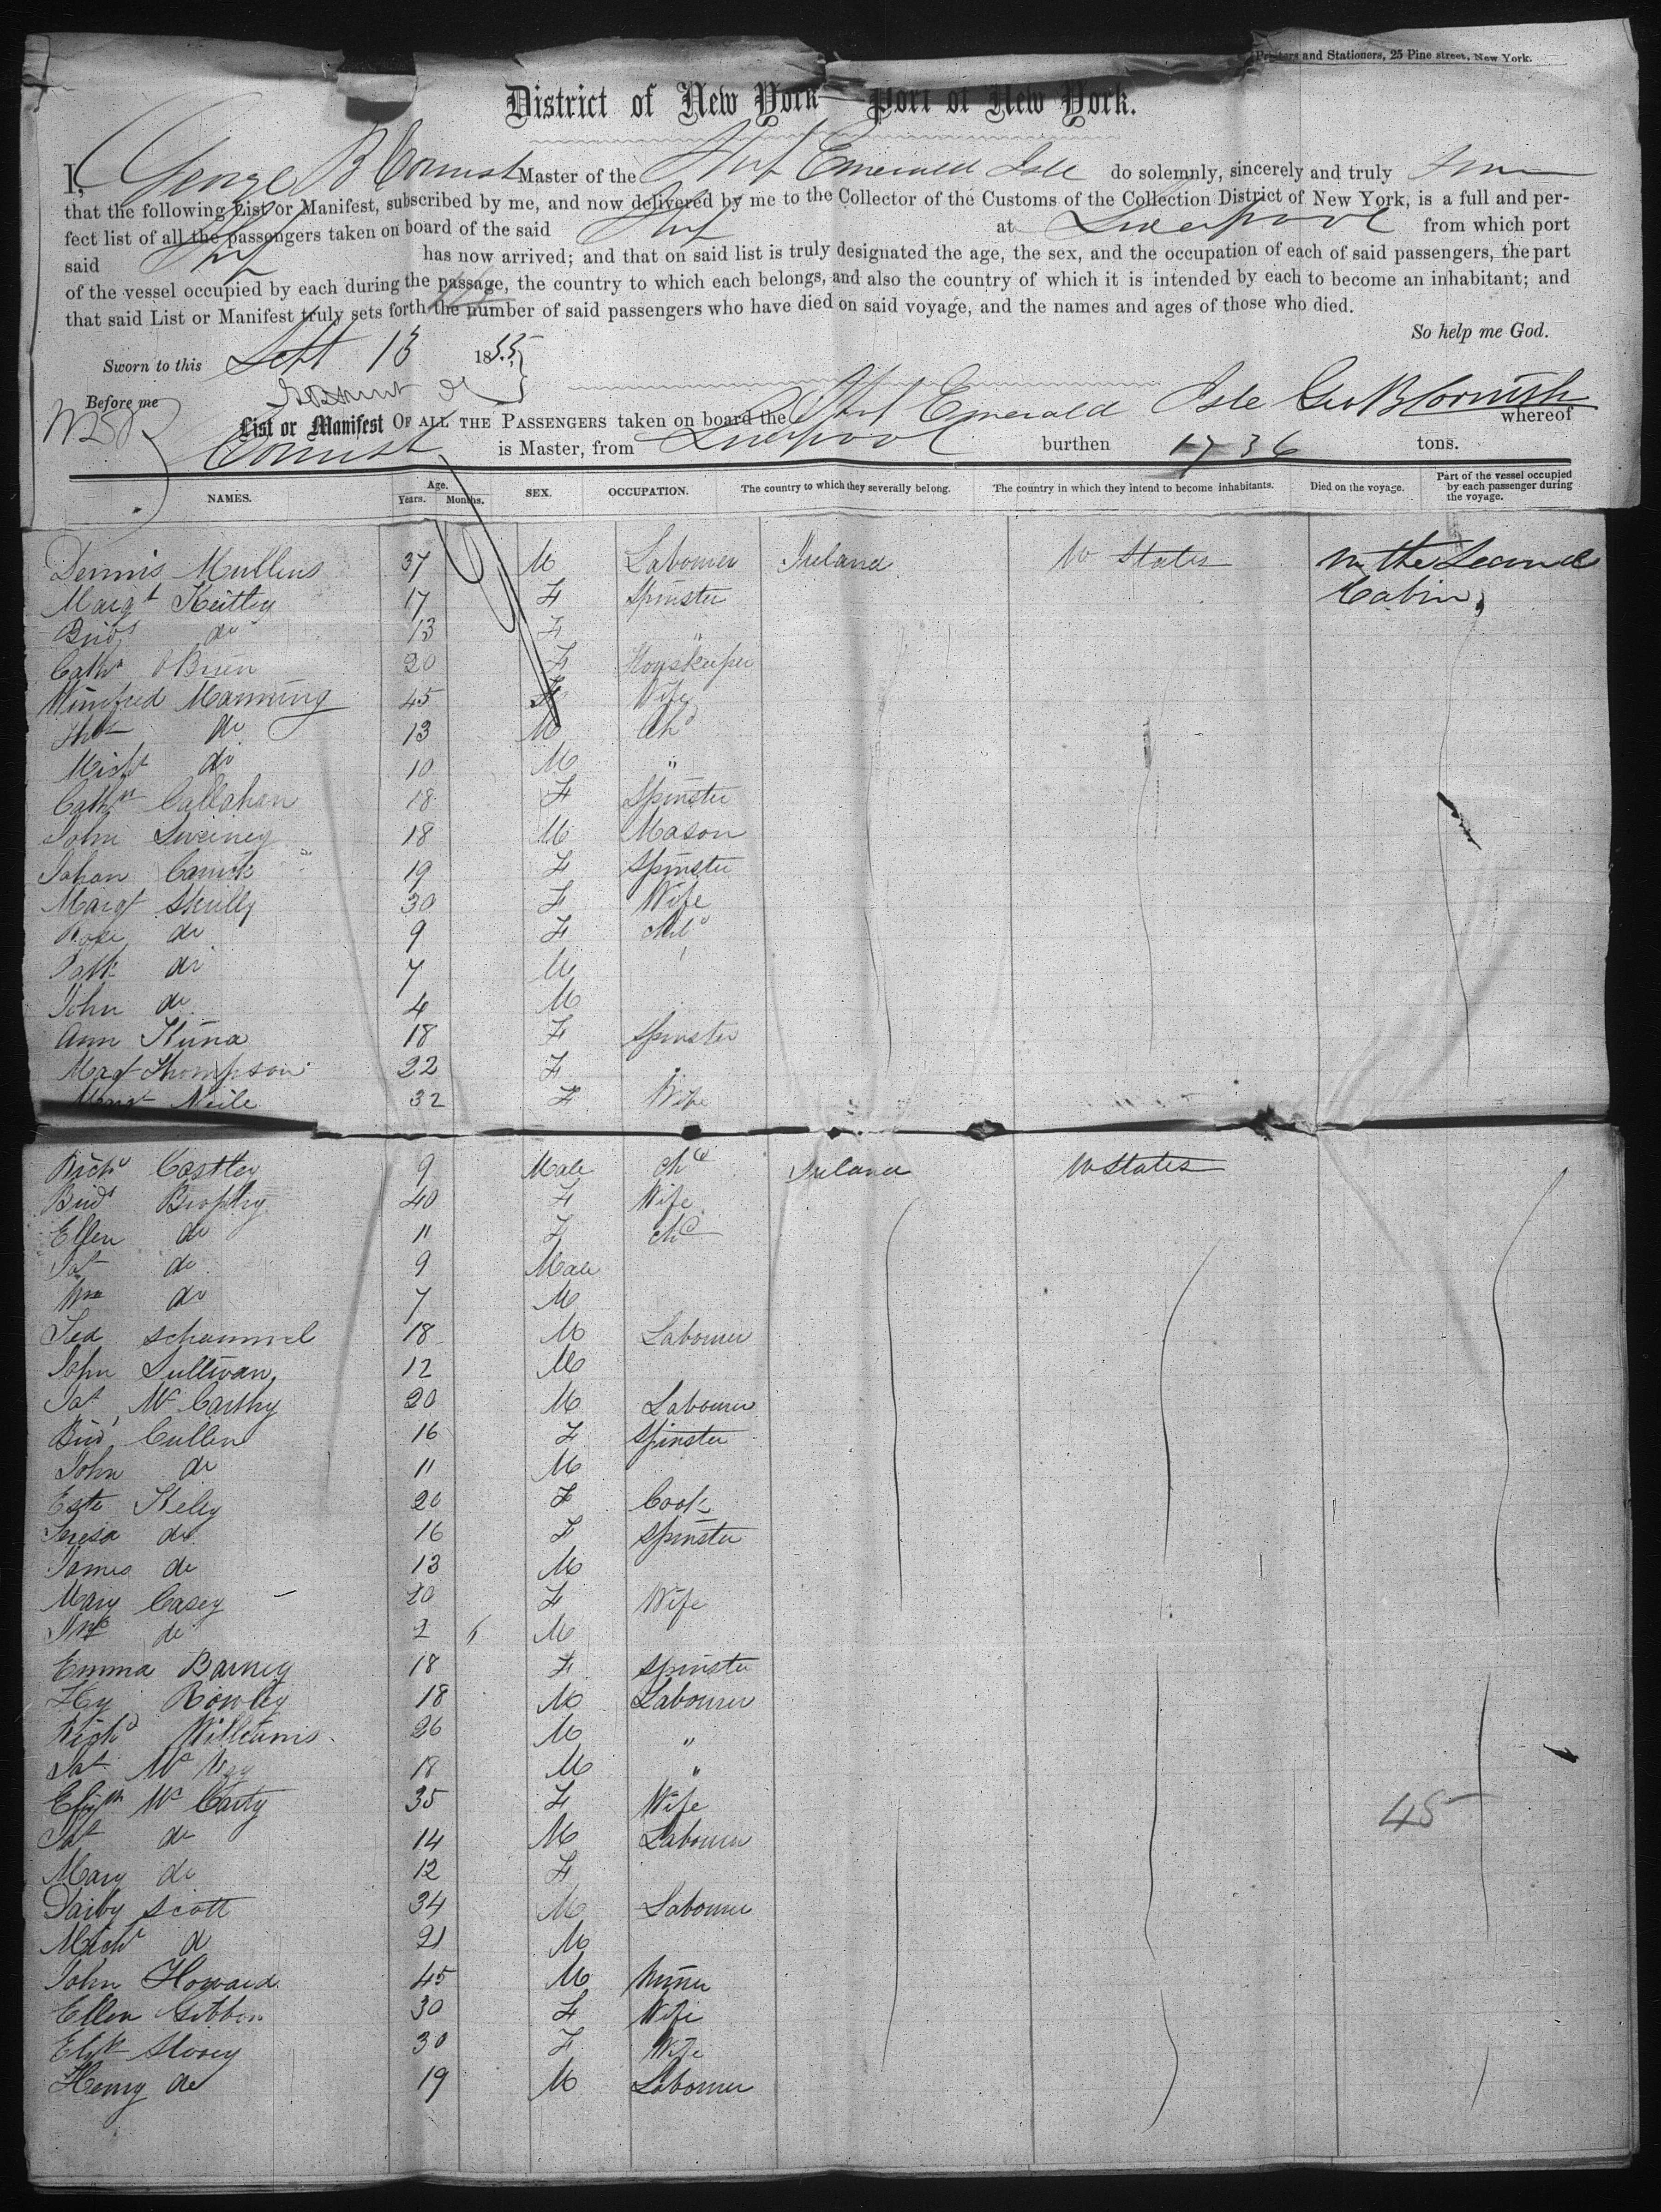 Printers and Stationers, 25 Pine street, New York.
District of New York Port of New York.
I, George B Cornish Master of the Ship Emerald Isle do solemnly, sincerely and truly
that the following List or Manifest, subscribed by me, and now delivered by me to the Collector of the Customs of the Collection District of New York, is a full and per-
fect list of all the passengers taken on board of the said Ship at Liverpool from which port
said Ship has now arrived; and that on said list is truly designated the age, the sex, and the occupation of each of said passengers, the part
of the vessel occupied by each during the passage, the country to which each belongs, and also the country of which it is intended by each to become an inhabitant; and
that said List or Manifest truly sets forth the number of said passengers who have died on said voyage, and the names and ages of those who died.
So help me God.
Sworn to this Sept 13 1855
Before me
List or Manifest OF ALL THE PASSENGERS taken on board the Ship Emerald Isle Geo B Cornish whereof
Cornish is Master, from Liverpool burthen 1736 tons.
NAMES. Age. Years. Months. SEX. OCCUPATION. The country to which they severally belong. The country in which they intend to become inhabitants. Died on the voyage. Part of the vessel occupied by each passenger during the voyage.
Dennis Mullens 37 M Labourer Ireland U States In the Second
Margt Keittey 17 F Spinster Cabin
Bridt do 13 F "
Cathn O Brien 20 F Houskeeper
Winifred Manning 45 F Wife
Thos do 13 M Chd
Michl do 10 M "
Cathn Callahan 18 F Spinster
John Sweiney 18 M Mason
Johan Carrick 19 F Spinster
Margt Skully 30 F Wife
Rose do 9 F Chd
Patk do 7 M
John do 4 M
Ann Kuna 18 F Spinster
Margt Thompson 22 F
Margt Neile 32 F Wife
Richd Costley 9 Male Chd Ireland U States
Bridt Brophey 40 F Wife
Ellen do 11 F Chd
Pat do 9 Male
Wm do 7 M
Ted Schammel 18 M Labourer
John Sullivan 12 M
Pat McCarthy 20 M Labourer
Brid Cullen 16 F Spinster
John do 11 M
Este Keley 20 F Cook
Teresa do 16 F Spinster
James do 13 M
Mary Casey 20 F Wife
do 2 6 M
Emma Barney 18 F Spinster
Hy Rowley 18 M Labourer
Richd Williams 26 M "
Pat Mc 18 M "
Elizth McCarty 35 F Wife 45
Pat do 14 M Labourer
Mary do 12 F
Darby Scott 34 M Labourer
Michl do 21 M
John Howard 45 M Miner
Ellen Gibbon 30 F Wife
Elizth Storey 30 F Wife
Henry do 19 M Labourer